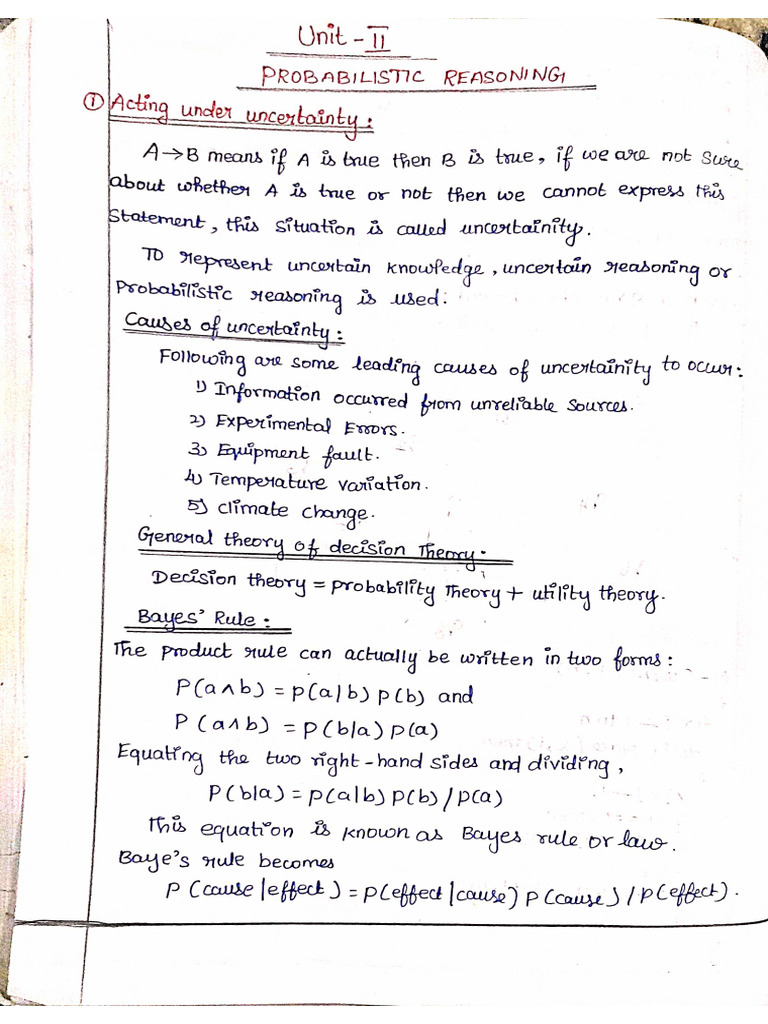 Unit - II
PROBABILISTIC REASONING
① Acting under uncertainty:
A→B means if A is true then B is true, if we are not sure
about whether A is true or not then we cannot express this
Statement, this situation is called uncertainity.
To represent uncertain knowledge, uncertain reasoning or
Probabilistic reasoning is used.
Causes of uncertainty:
Following are some leading causes of uncertainity to occur:
1) Information occurred from unreliable sources.
2) Experimental Errors.
3) Equipment fault.
4) Temperature variation.
5) climate change.
General theory of decision Theory.
Decision theory = probability Theory + utility theory.
Bayes' Rule:
The product rule can actually be written in two forms:
P(a∧b) = p(a|b) p(b) and
P(a∧b) = p(b|a) p(a)
Equating the two right-hand sides and dividing,
P(b|a) = p(a|b) p(b) / p(a)
This equation is known as Bayes rule or law.
Baye's rule becomes
P(cause|effect) = p(effect|cause) p(cause) / p(effect).